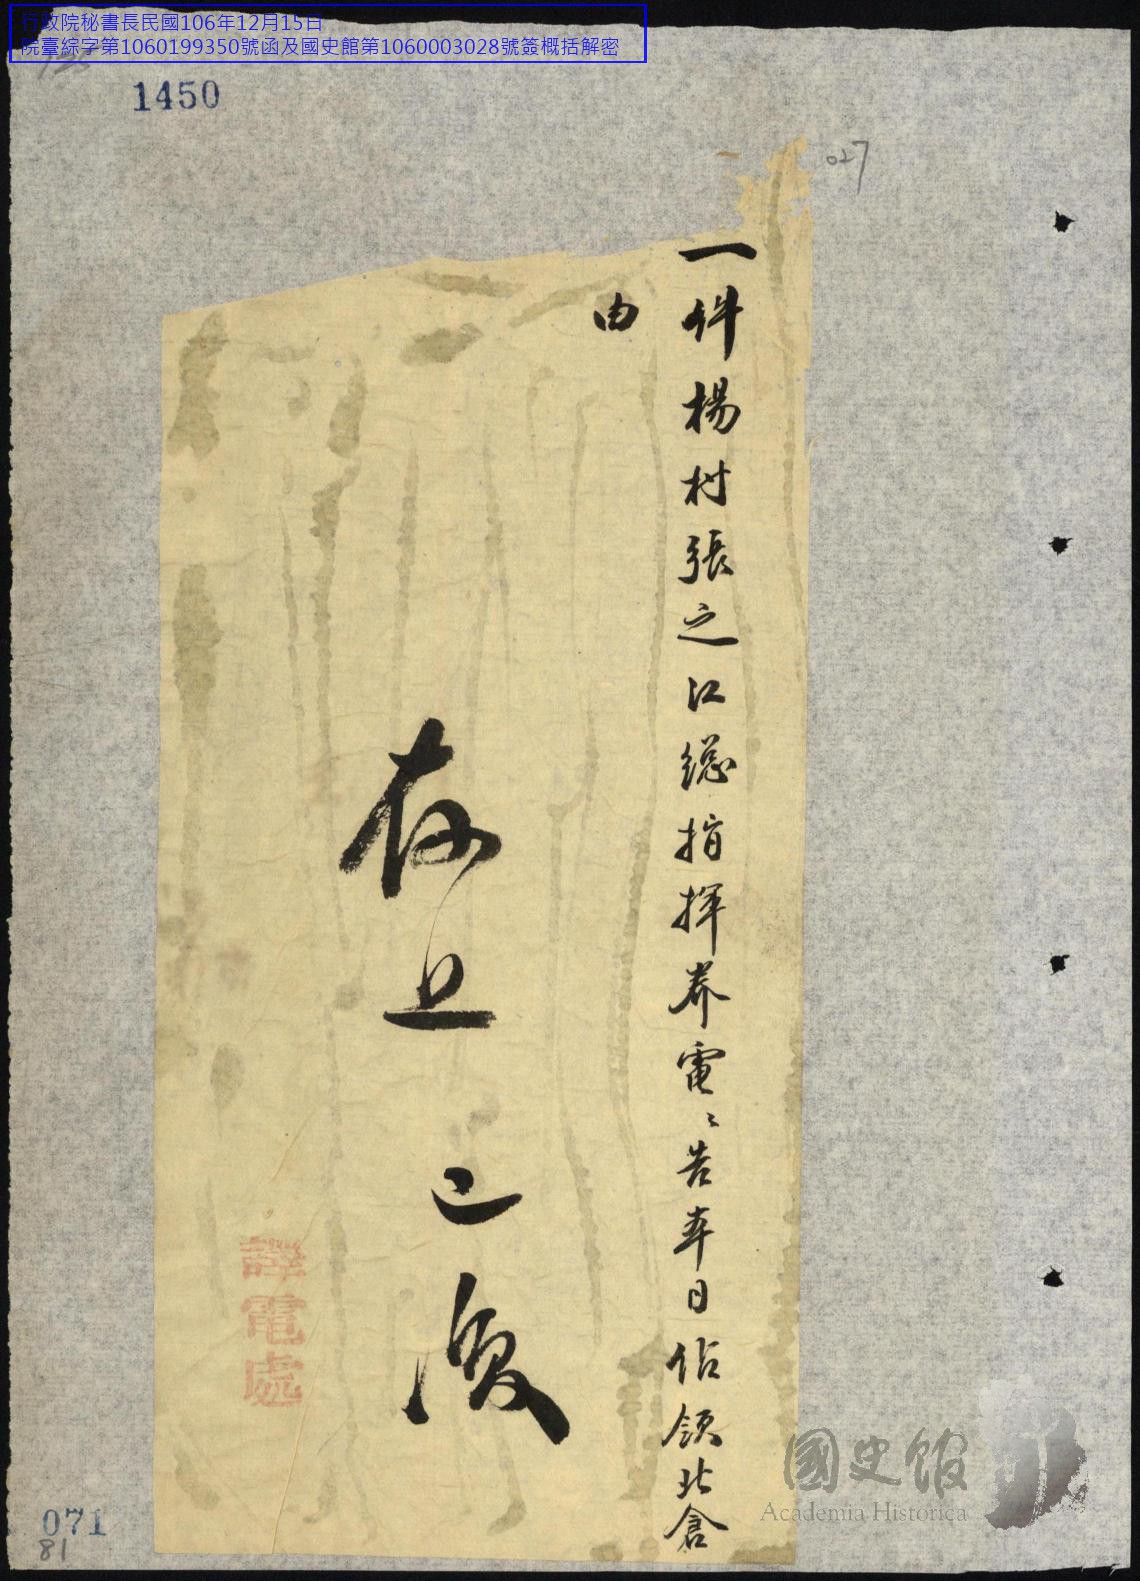 行政院秘書長民國106年12月15日
院臺綜字第1060199350號函及國史館第1060003028號簽概括解密
1450
027
一件楊村張之江總指揮養電電告本日佔領北倉
由
存 已復
譯電處
071
81
國史館
Academia Historica